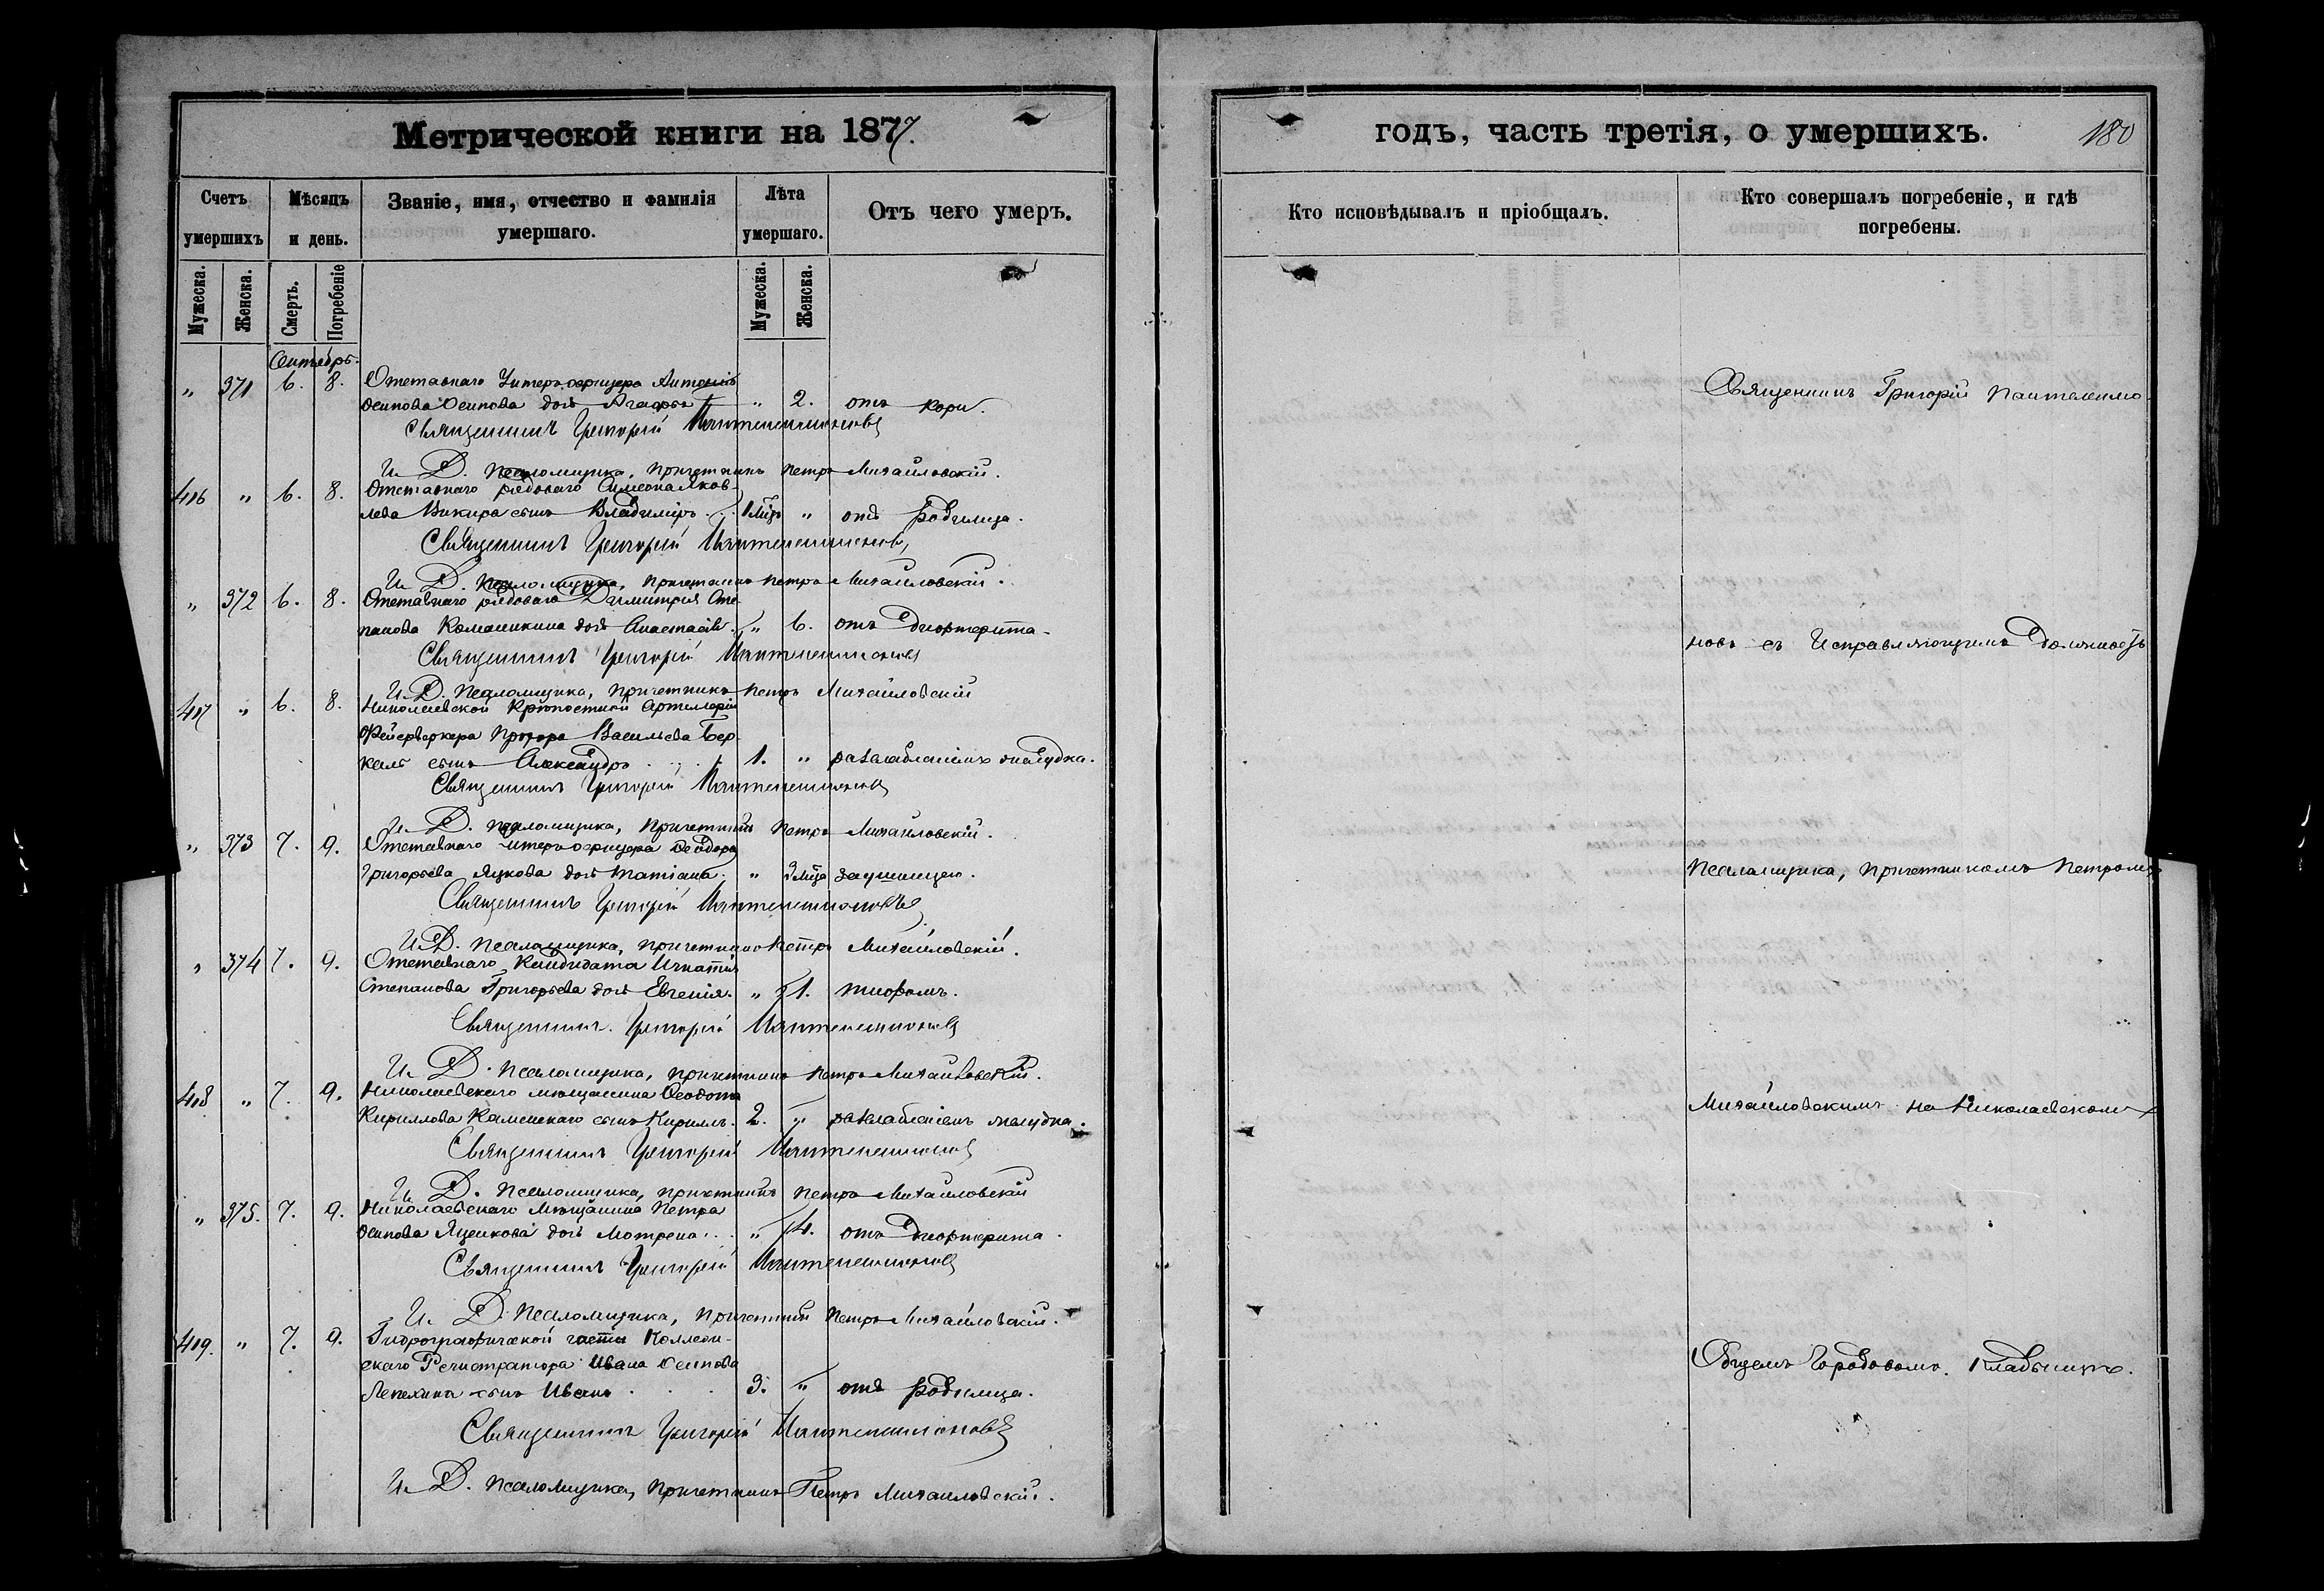 Метрической книги на 1877.
Счетъ умершихъ
Мѣсяцъ и день.
Званіе, имя, отчество и фамилія умершаго.
Лѣта умершаго.
Отъ чего умеръ.
Мужеска. Женска. Смерть. Погребеніе Мужеска. Женска.
Сентябрь.
" 371 6. 8. Отставнаго Унтеръ-офицера
Осипова дочь " 2. отъ кори.
Священникъ Григорій Пантелеимоновъ
И. Д. Псаломщика, Причетникъ Петръ Михайловскій.
406 " 6. 8. Отставнаго рядоваго Симеона Яков-
лева сынъ Владиміръ . . " отъ родимца.
Священникъ Григорій Пантелеимоновъ
И. Д. Псаломщика, Причетникъ Петръ Михайловскій.
" 372 6. 8. Отставнаго рядоваго Димитрія Сте-
панова дочь Анастасія. " 6. отъ дифтерита.
Священникъ Григорій Пантелеимоновъ
И. Д. Псаломщика, Причетникъ Петръ Михайловскій
407 " 6. 8. Николаевской Крѣпостной Артилеріи
Фейерверкера Васильева
сынъ Александръ . . . 1. " разслабленіемъ желудка.
Священникъ Григорій Пантелеимоновъ
И. Д. Псаломщика, Причетникъ Петръ Михайловскій.
" 373 7. 9. Отставнаго Унтеръ-офицера Ѳеодора
Григорьева дочь Татіана. " 3 мѣца
Священникъ Григорій Пантелеимоновъ
И. Д. Псаломщика, Причетникъ Петръ Михайловскій.
" 374 7. 9. Отставнаго Кандидата Игнатія
Степанова Григорьева дочь Евгенія. " 1. тифомъ.
Священникъ Григорій Пантелеимоновъ
И. Д. Псаломщика, Причетникъ Петръ Михайловскій.
408 " 7. 9. Николаевскаго мѣщанина Ѳеодота
Кириллова Каменскаго сынъ Кириллъ. 2. " разслабленіемъ желудка.
Священникъ Григорій Пантелеимоновъ
И. Д. Псаломщика, Причетникъ Петръ Михайловскій
" 375. 7. 9. Николаевскаго Мѣщанина Петра
Осипова Яценкова дочь Мотрена . . " 4. отъ дифтерита.
Священникъ Григорій Пантелеимоновъ
И. Д. Псаломщика, Причетникъ Петръ Михайловскій.
409. " 7. 9. Гидрографической части Коллеж-
скаго Регистратора Ивана Осипова
Лепехина сынъ Иванъ . . . 3. " отъ родимца.
Священникъ Григорій Пантелеимоновъ
И. Д. Псаломщика, Причетникъ Петръ Михайловскій.
годъ, часть третія, о умершихъ. 180
Кто исповѣдывалъ и пріобщалъ.
Кто совершалъ погребеніе, и гдѣ погребены.
Священникъ Григорій Пантелеимо-
новъ съ Исправляющимъ Должность
Псаломщика, Причетникомъ Петромъ
Михайловскимъ на Николаевскомъ
Общемъ Городовомъ Кладбищѣ.